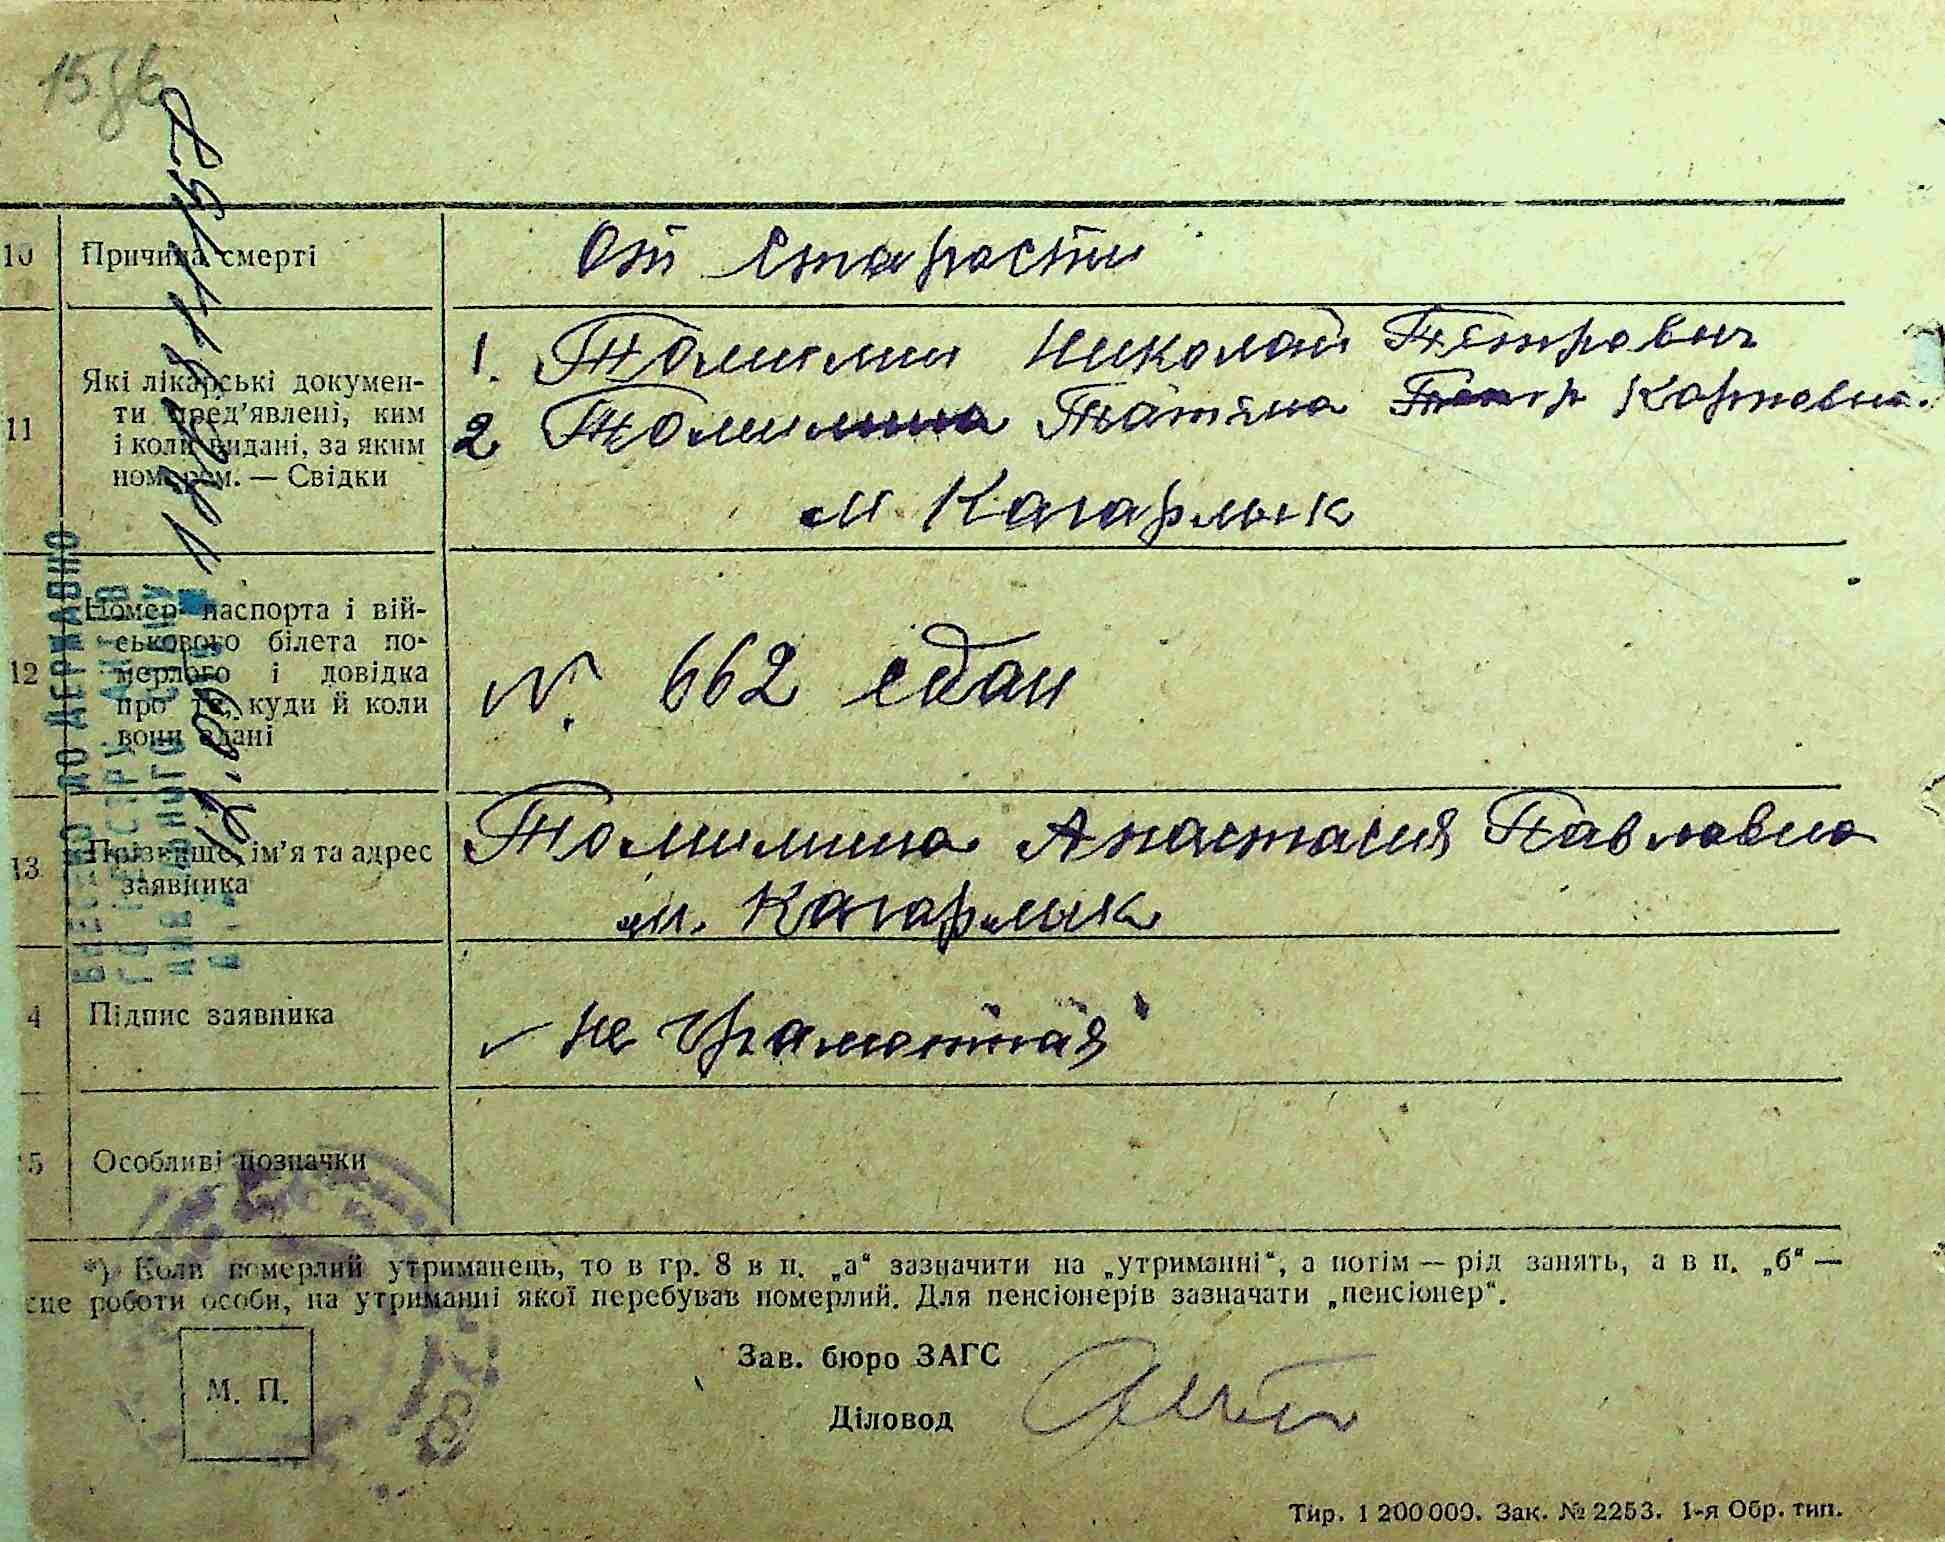 10 Причина смерті От старости
11 Які лікарські докумен-
ти пред’явлені, ким
і коли видані, за яким
номером. — Свідки
1. Томилин Николай Петрович
2 Томилина Татяна Карповна.
м Кагарлык
12 Номер паспорта і вій-
ськового білета по-
мерлого і довідка
про те, куди й коли
вони здані
N. 662 сдан
13 Прізвище, ім’я та адрес
заявника
Томилина Анастасия Павловна
м. Кагарлык
4 Підпис заявника не грамотная
5 Особливі позначки
*) Коли померлий утриманець, то в гр. 8 в п. „а“ зазначити на „утриманні“, а потім — рід занять, а в п. „б“ —
сце роботи особи, на утриманні якої перебував померлий. Для пенсіонерів зазначати „пенсіонер“.
М. П.
Зав. бюро ЗАГС
Діловод
Тир. 1 200 000. Зак. № 2253. 1-я Обр. тип.
ВНЕСЕНО ДО ДЕРЖАВНО
ГО РЕЄСТРУ АКТІВ
ЦИВІЛЬНОГО СТАНУ